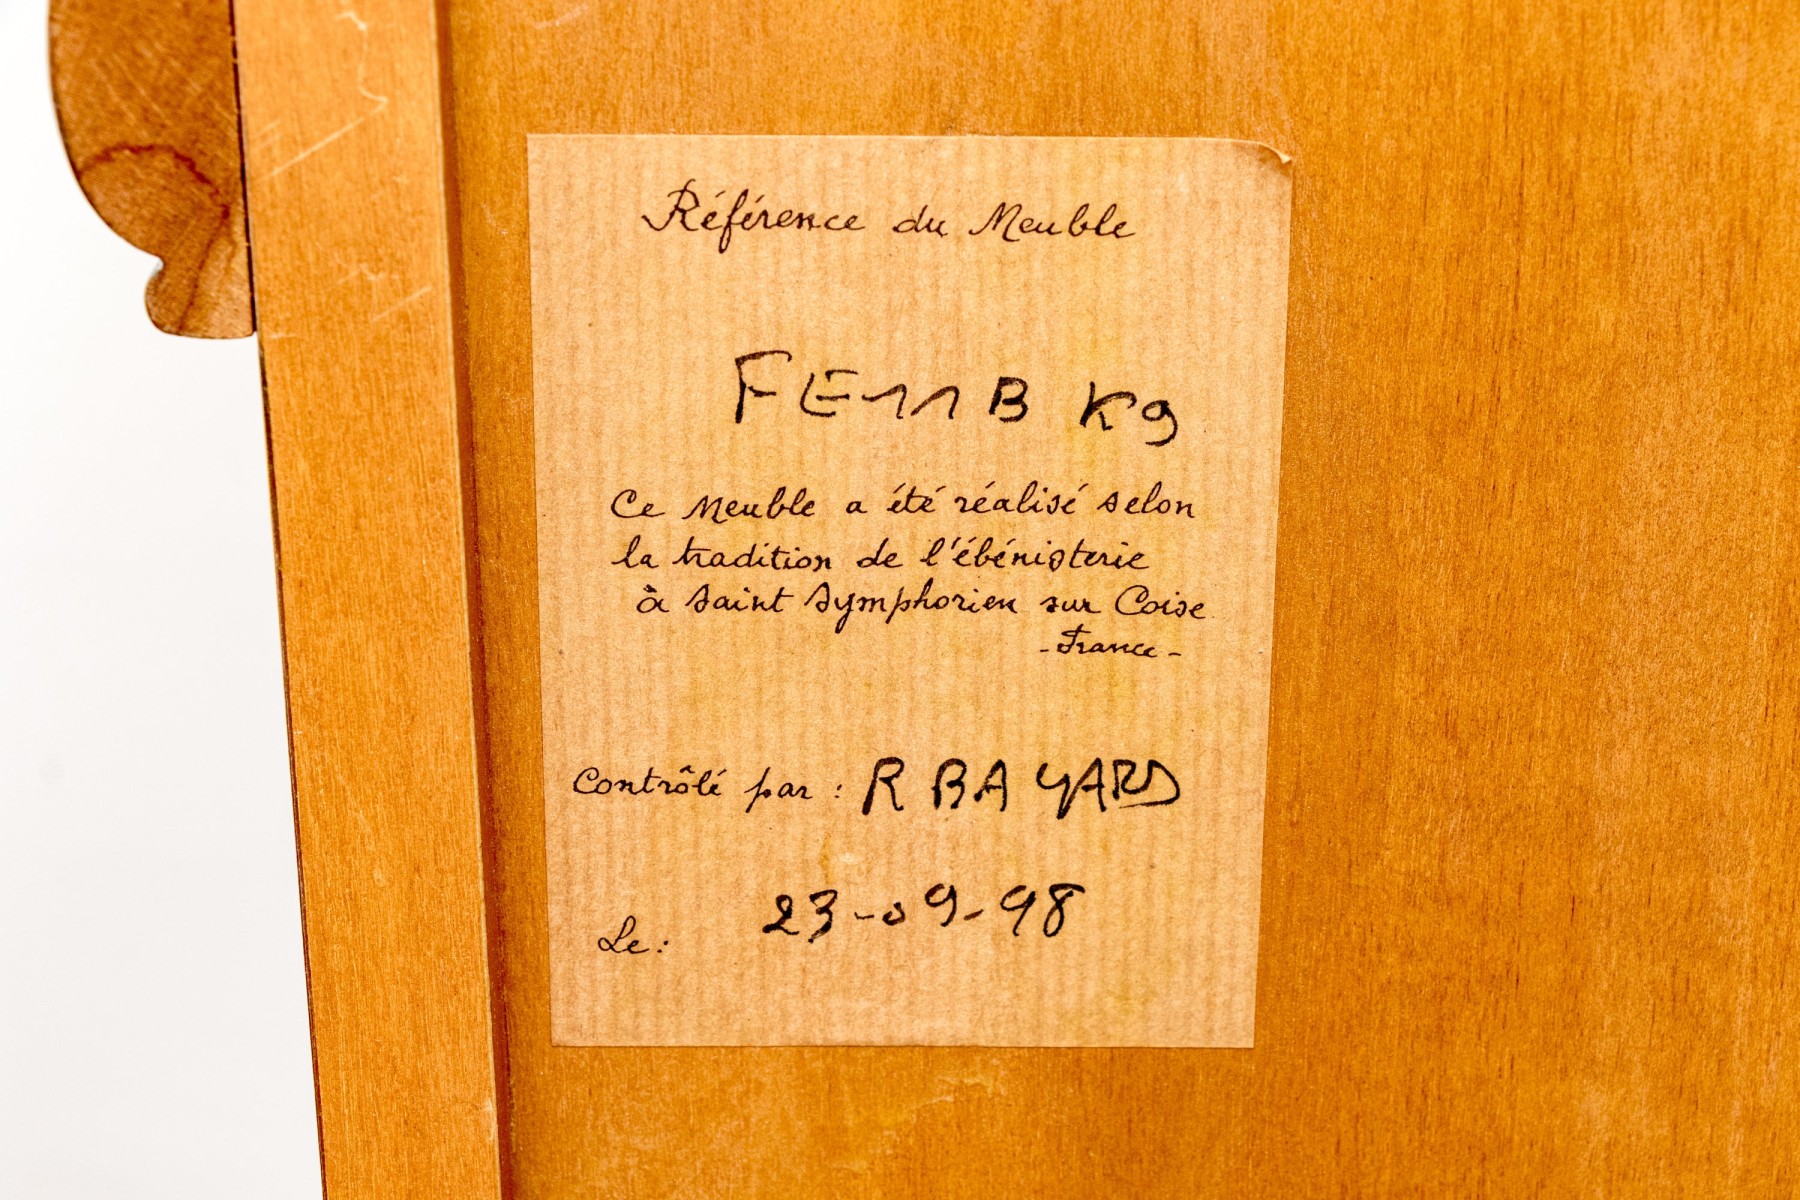 Référence du Meuble
FE11B K9
Ce Meuble a été réalisé selon
la tradition de l'ébénisterie
à Saint Symphorien sur Coise
- France -
Contrôlé par : R BAYARD
Le : 23-09-98